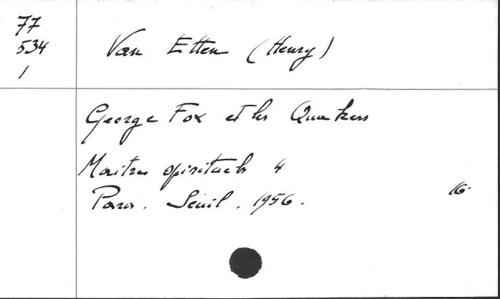 77
534
1
Van Etten (Henry)
George Fox et les Quakers
Maitres spirituels 4
Paris. Seuil. 1956.
16.